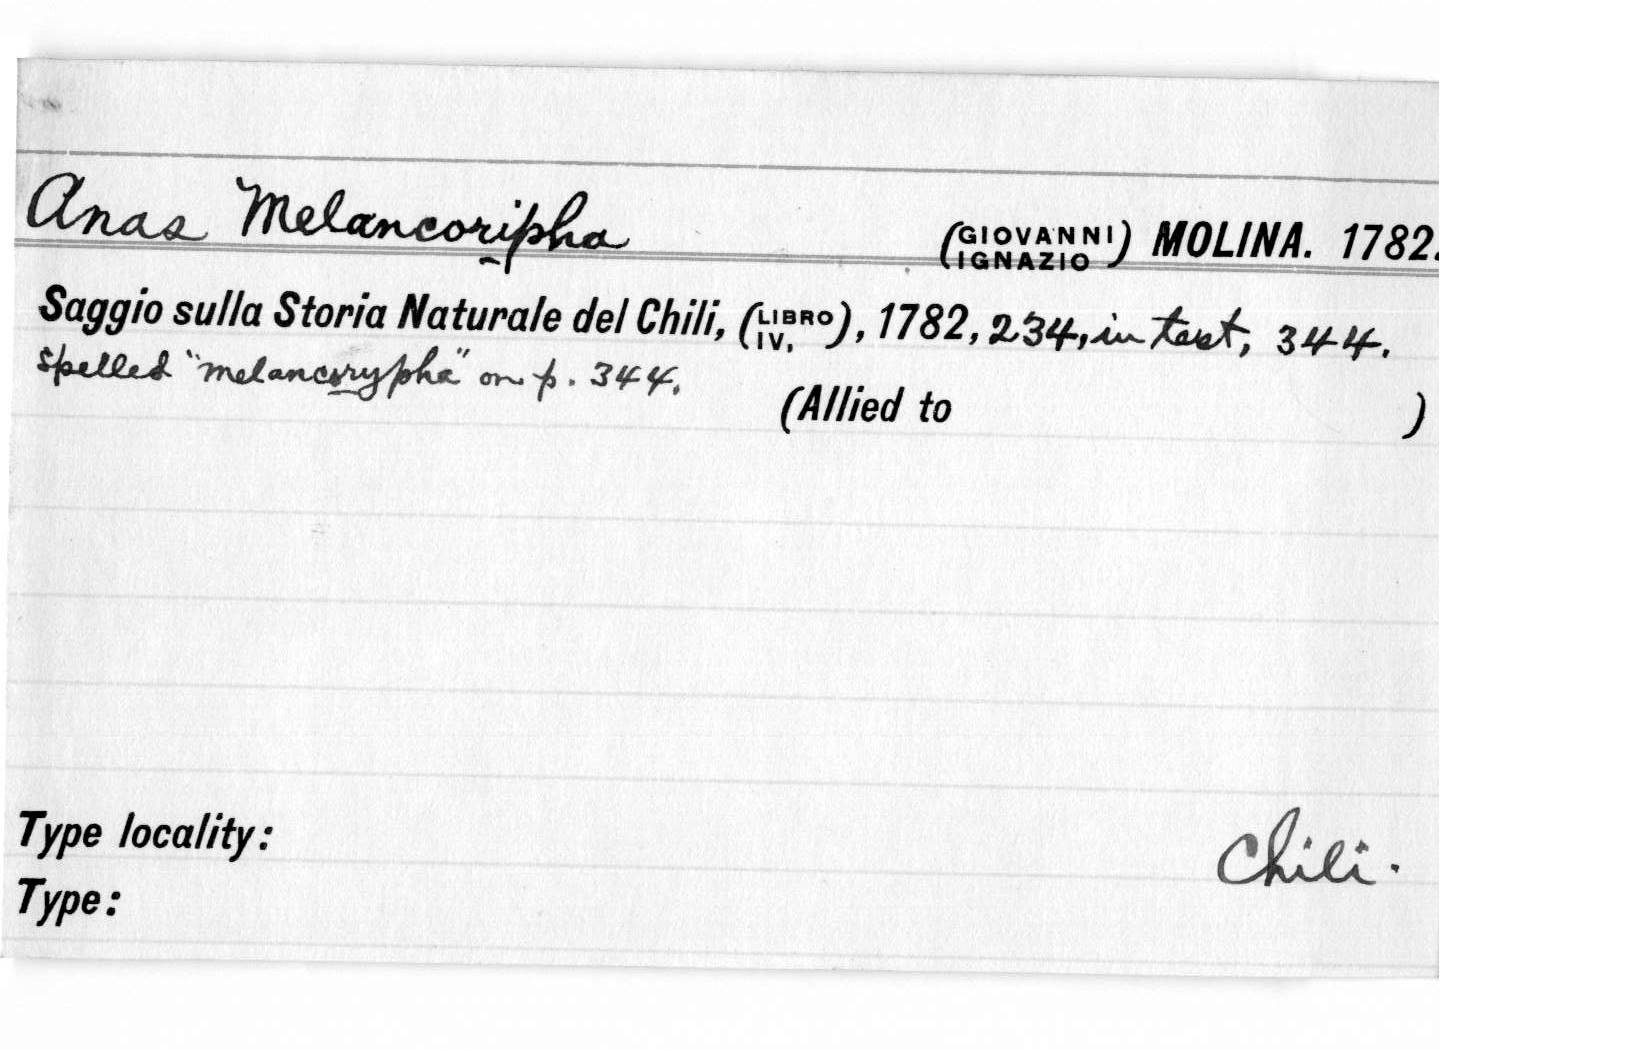 Anas Melancoripha (GIOVANNI IGNAZIO) MOLINA. 1782.
Saggio sulla Storia Naturale del Chili, (LIBRO IV,), 1782, 234, in text, 344.
spelled "melancorypha" on p. 344.
(Allied to )
Type locality: Chili.
Type: